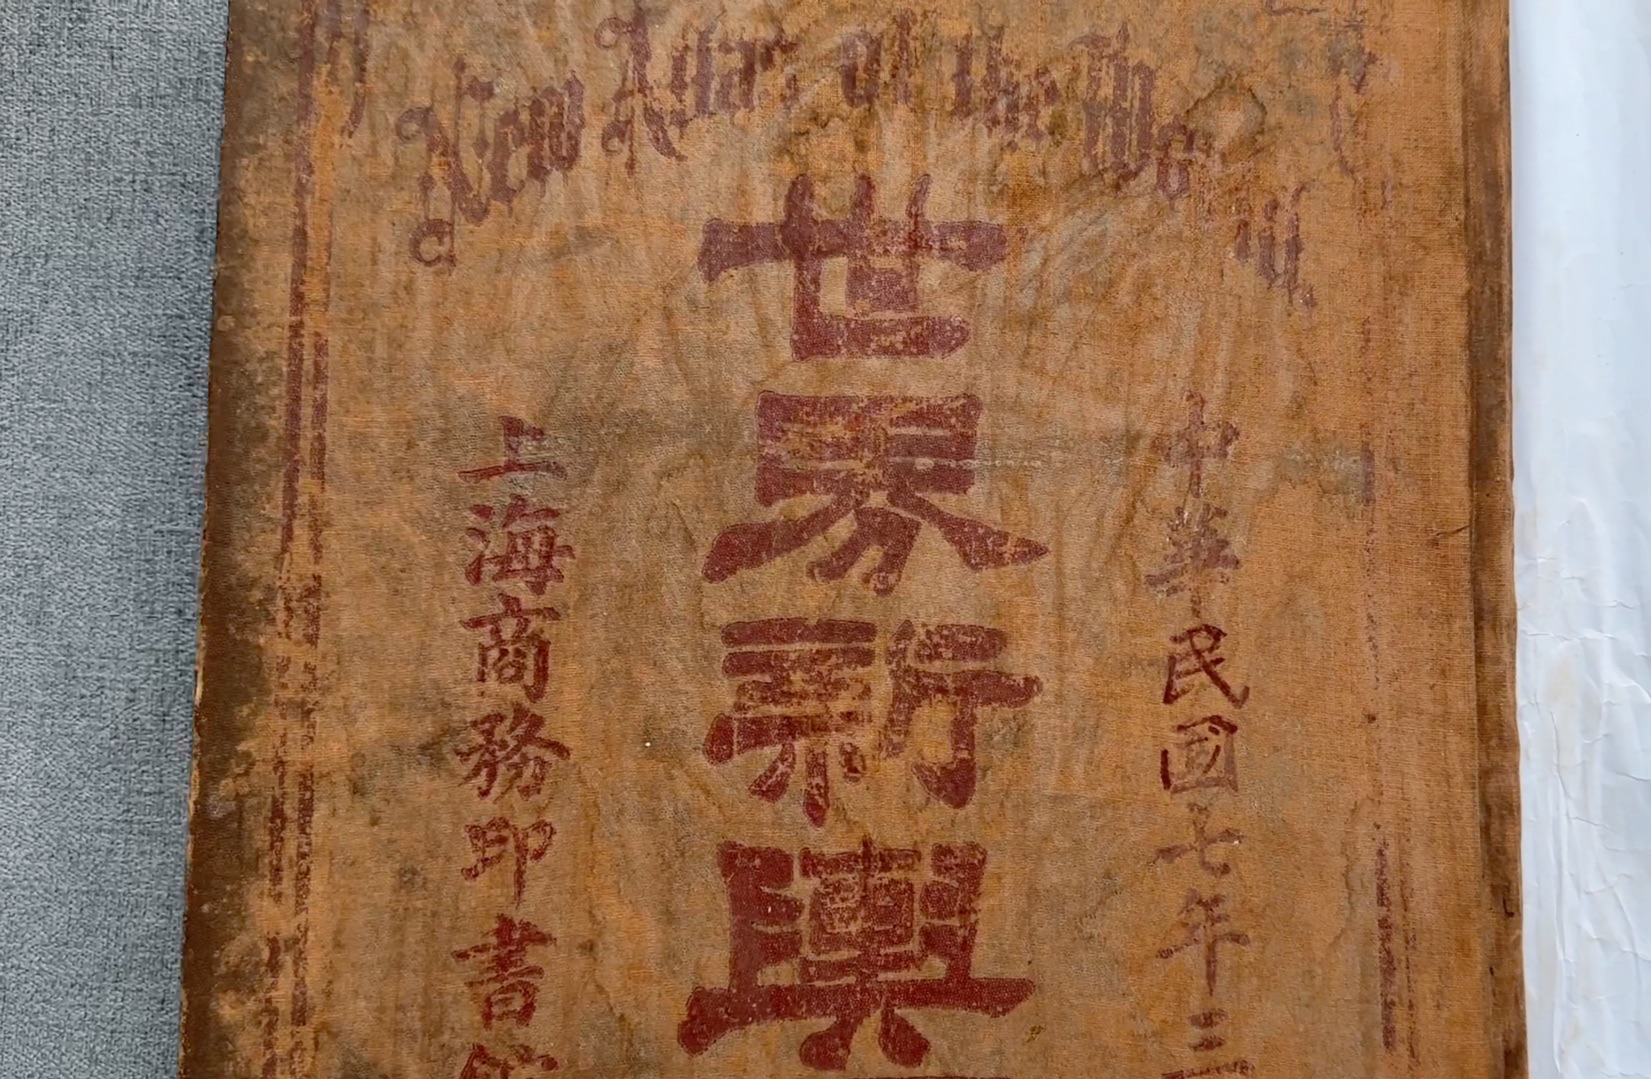 New Atlas of the World
世界新輿
中華民國七年三
上海商務印書館